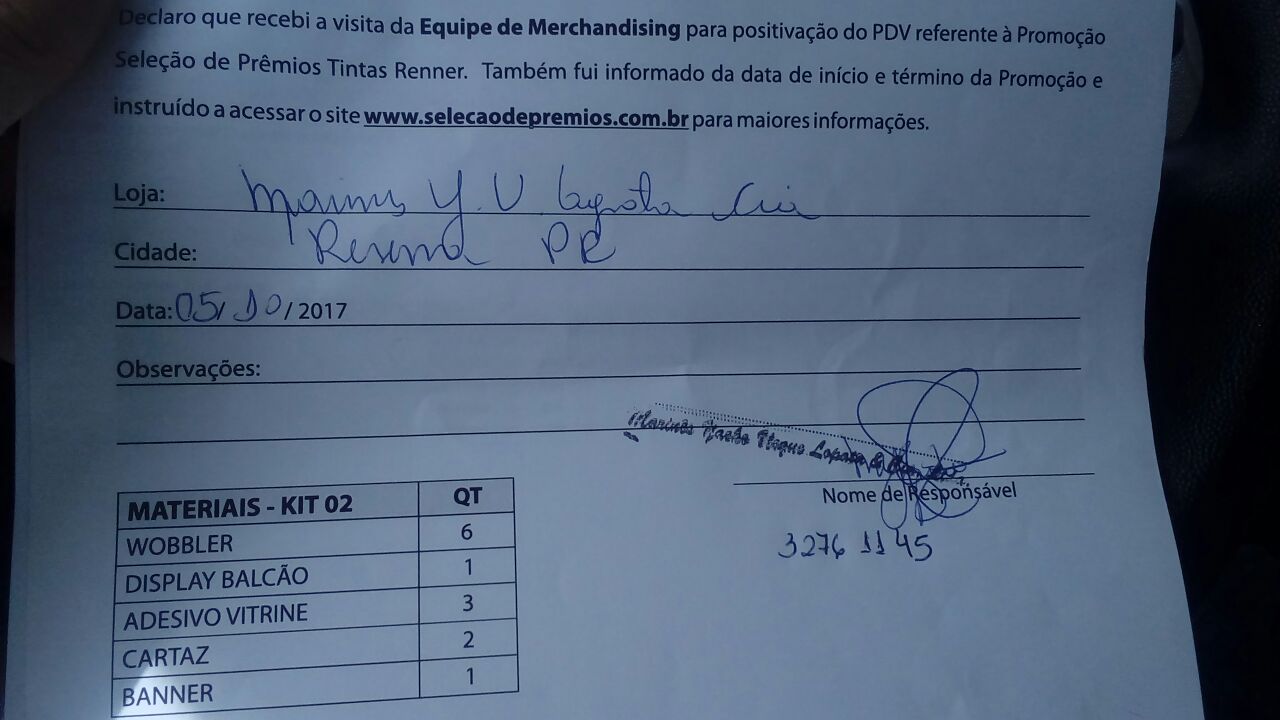 Declaro que recebi a visita da Equipe de Merchandising para positivação do PDV referente à Promoção
Seleção de Prêmios Tintas Renner. Também fui informado da data de início e término da Promoção e
instruído a acessar o site www.selecaodepremios.com.br para maiores informações.
Loja: Y. V
Cidade: PR
Data: 05/10/2017
Observações:
Marinês
Nome de Responsável
3276 1145
MATERIAIS - KIT 02 QT
WOBBLER 6
DISPLAY BALCÃO 1
ADESIVO VITRINE 3
CARTAZ 2
BANNER 1